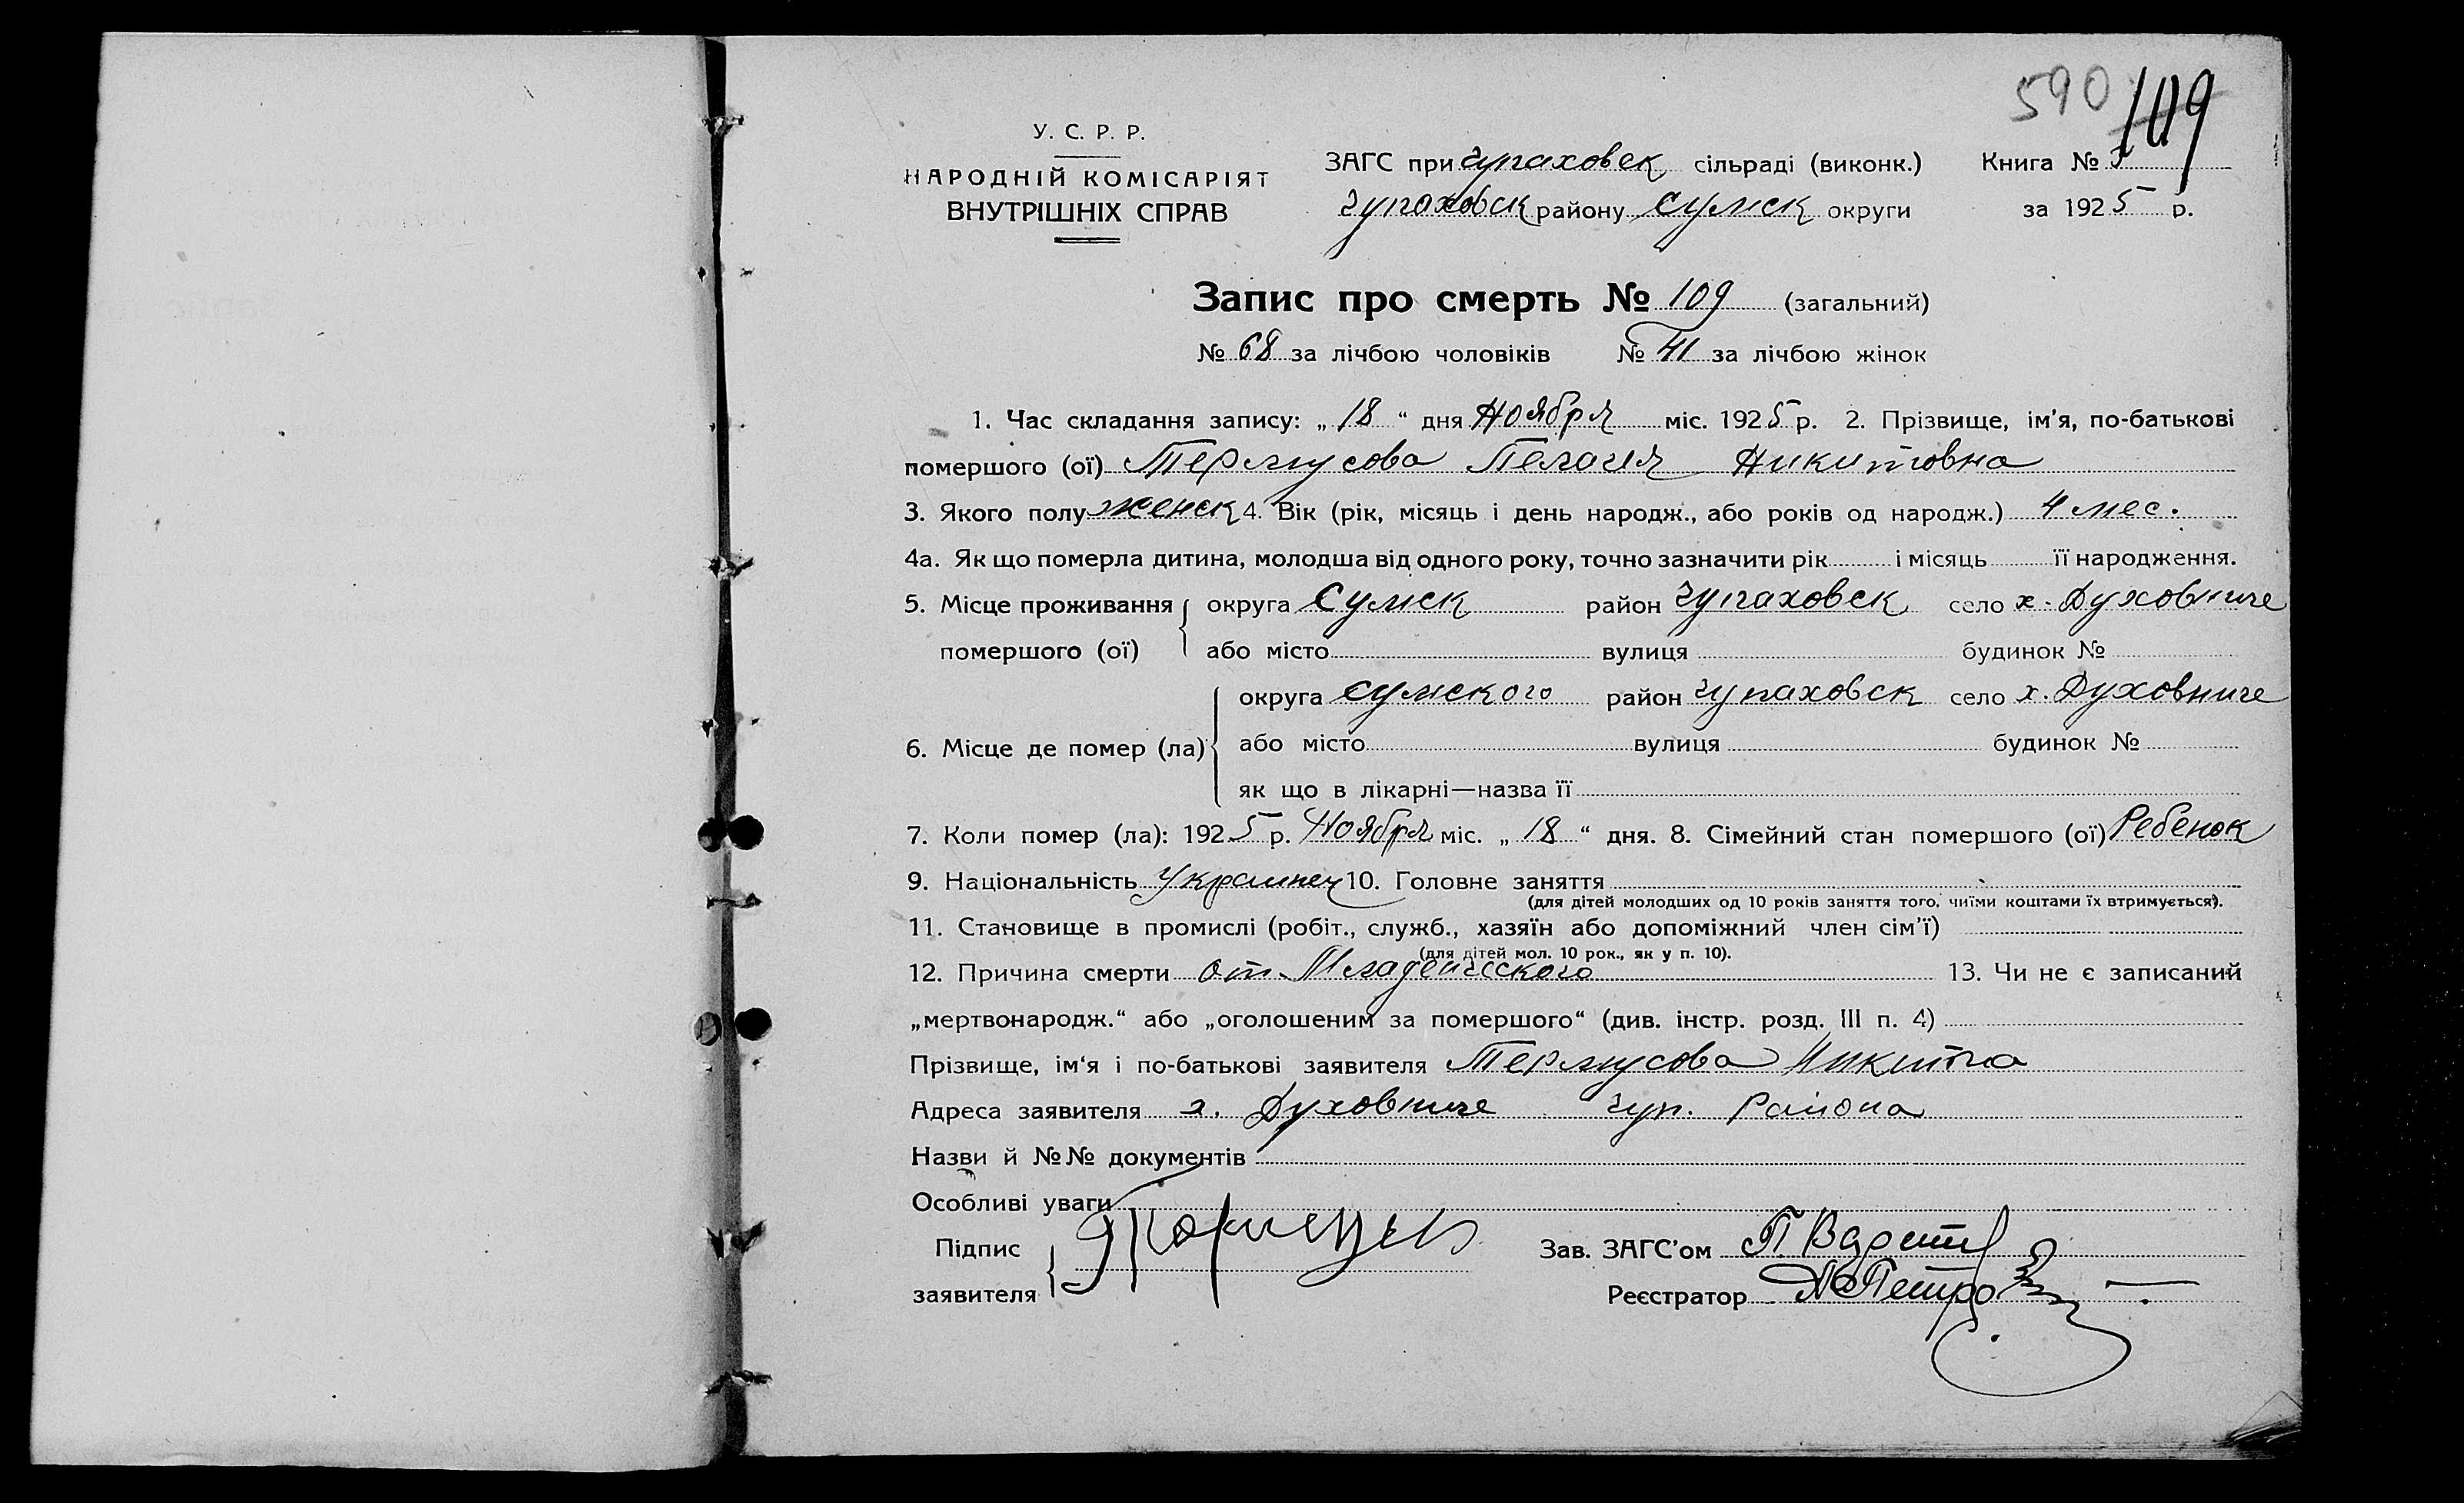 590 109
У. С. Р. Р.
НАРОДНІЙ КОМІСАРІЯТ
ВНУТРІШНІХ СПРАВ
ЗАГС при Чупаховск сільраді (виконк.) Книга №
Чупаховск району Сумск округи за 1925 р.
Запис про смерть № 109 (загальний)
№ 68 за лічбою чоловіків № 41 за лічбою жінок
1. Час складання запису: „ 18 “ дня Ноября міс. 1925 р. 2. Прізвище, ім'я, по-батькові
помершого (ої) Термусова Пелагия Никитовна
3. Якого полу женск 4. Вік (рік, місяць і день народж., або років од народж.) 4 мес.
4а. Як що померла дитина, молодша від одного року, точно зазначити рік і місяць її народження.
5. Місце проживання помершого (ої) округа Сумск район Чупаховск село х. Духовниче
або місто вулиця будинок №
6. Місце де помер (ла) округа Сумского район Чупаховск село х. Духовниче
або місто вулиця будинок №
як що в лікарні—назва її
7. Коли помер (ла): 1925 р. Ноября міс. „ 18 “ дня. 8. Сімейний стан помершого (ої) Ребенок
9. Національність Украинец 10. Головне заняття
(для дітей молодших од 10 років заняття того, чиїми коштами їх втримується).
11. Становище в промислі (робіт., служб., хазяїн або допоміжний член сім'ї)
(для дітей мол. 10 рок., як у п. 10).
12. Причина смерти от Младенческого 13. Чи не є записаний
„мертвонародж.“ або „оголошеним за помершого“ (див. інстр. розд. III п. 4)
Прізвище, ім'я і по-батькові заявителя Термусова Никитта
Адреса заявителя х. Духовниче Чуп. Района
Назви й №№ документів
Особливі уваги
Підпис
заявителя
Зав. ЗАГС'ом
Реєстратор